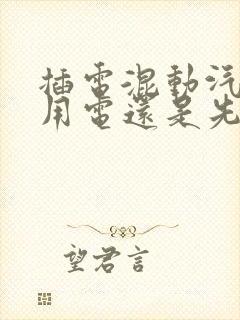 插電混動汽
用電還是先
望君言